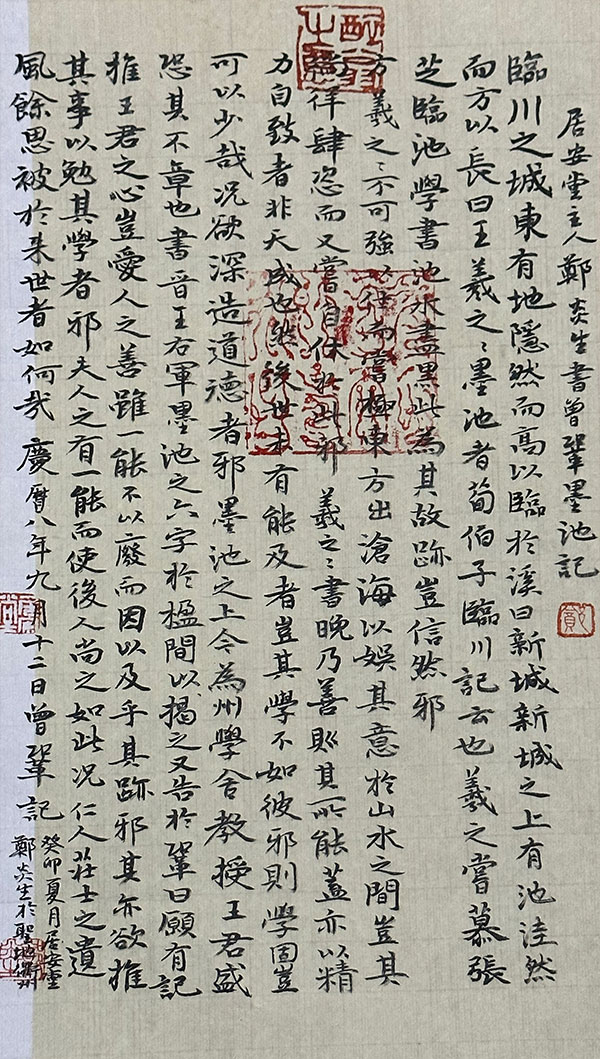 居安堂主人鄭炎生書曾鞏墨池記
臨川之城東有地隱然而高以臨於溪曰新城新城之上有池洼然
而方以長曰王羲之〻墨池者荀伯子臨川記云也羲之嘗慕張
芝臨池學書池水盡黑此為其故跡豈信然邪
方羲之〻不可強以仕而嘗極東方出滄海以娛其意於山水之間豈其
徜徉肆恣而又嘗自休於此邪羲之〻書晚乃善則其所能蓋亦以精
力自致者非天成也然後世未有能及者豈其學不如彼邪則學固豈
可以少哉況欲深造道德者邪墨池之上今為州學舍教授王君盛
恐其不章也書晉王右軍墨池之六字於楹間以揭之又告於鞏曰願有記
推王君之心豈愛人之善雖一能不以廢而因以及乎其跡邪其亦欲推
其事以勉其學者邪夫人之有一能而使後人尚之如此況仁人莊士之遺
風餘思被於來世者如何哉慶曆八年九月十二日曾鞏記
癸卯夏月居安堂
鄭炎生於聖地衢州